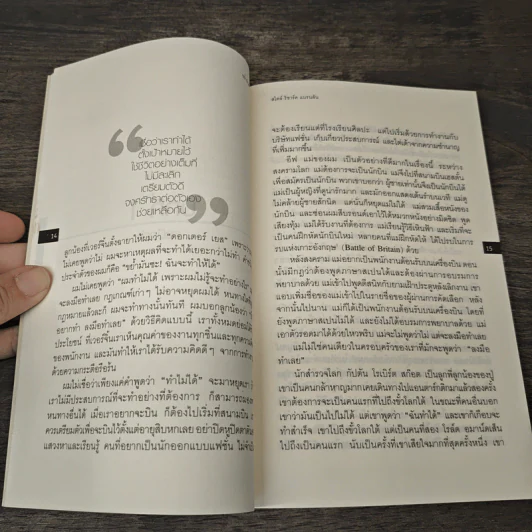 เชื่อว่าเราทำได้
ตั้งเป้าหมายไว้
ใช้ชีวิตอย่างเต็มที่
ไม่มีละเลิก
เตรียมตัวดี
จงศรัทธาต่อตัวเอง
ช่วยเหลือกัน
14
ลูกน้องที่เวอร์จิ้นตั้งฉายาให้ผมว่า "ดอกเตอร์ เยส" เพราะ
ไม่เคยพูดว่าไม่ ผมจะหาเหตุผลที่จะทำได้เยอะกว่าไม่ทำ คำ
ประจำตัวของผมก็คือ "ช่ำมันซะ! ฉันจะทำให้ได้"
ผมไม่เคยพูดว่า "ผมทำไม่ได้ เพราะผมไม่รู้จะทำอย่างไร"
จะลงมือทำเลย กฎเกณฑ์เก่าๆ ไม่อาจหยุดผมได้ หนทางใดที่
กฎหมายแล้วละก็ ผมจะทำทางนั้นทันที ผมบอกลูกน้องว่า
อยากทำ ลงมือทำเลย" ด้วยวิธีคิดแบบนี้ เราทั้งหมดย่อมได้
ประโยชน์ ที่เวอร์จิ้นเราเห็นคุณค่าของงานทุกชิ้นและทุกความ
ของพนักงาน และมันทำให้เราได้รับความคิดดีๆ จากการทำ
ด้วยความกระตือรือร้น
ผมไม่เชื่อว่าเพียงแค่คำพูดว่า "ทำไม่ได้" จะมาหยุดเรา
เราไม่มีประสบการณ์ที่จะทำอย่างที่ต้องการ ก็สามารถมองหา
หนทางอื่นได้ เมื่อเราอยากจะบิน ก็ต้องไปเริ่มที่สนามบิน
ควรเตรียมตัวเพื่อจะบินไว้ตั้งแต่อายุสิบหกเลย อย่าปิดหูปิดตาตัวเอง
แสวงหาและเรียนรู้ คนที่อยากเป็นนักออกแบบแฟชั่น ไม่จำเป็น
สไตล์ ริชาร์ด แบรนสัน
จะต้องเรียนแต่ที่โรงเรียนศิลปะ แค่ไปเริ่มด้วยการทำงานกับ
บริษัทแฟชั่น เก็บเกี่ยวประสบการณ์ และไต่เต้าจากความชำนาญ
ที่เพิ่มมากขึ้น
อีฟ แม่ของผม เป็นตัวอย่างที่ดีมากในเรื่องนี้ ระหว่าง
สงครามโลก แม่ต้องการจะเป็นนักบิน แม่จึงไปที่สนามบินเฮสตัน
เพื่อสมัครเป็นนักบิน พวกเขาบอกว่า ผู้ชายเท่านั้นจึงเป็นนักบินได้
แม่เป็นผู้หญิงที่ดูน่ารักมาก และมักออกแสดงเต้นรำบนเวที แม่
ไม่คล้ายผู้ชายสักนิด แต่นั่นก็หยุดแม่ไม่ได้ แม่สวมเสื้อหนังของ
นักบิน และซ่อนผมสีบรอนด์เอาไว้ใต้หมวกหนังอย่างมิดชิด พูด
เสียงทุ้ม แม่ได้รับงานที่ต้องการ แม่เรียนรู้วิธีเหินฟ้า และเริ่มจะ
เป็นคนฝึกหัดนักบินใหม่ หลายคนที่แม่ฝึกหัดให้ ได้ไปรบในการ
รบแห่งเกาะอังกฤษ' (Battle of Britain) ด้วย
15
หลังสงคราม แม่อยากเป็นพนักงานต้อนรับบนเครื่องบิน ตอน
นั้นมีกฎว่าต้องพูดภาษาสเปนได้และต้องผ่านการอบรมการ
พยาบาลด้วย แม่เข้าไปพูดดีสนิทกับยามเฝ้าประตูหลังเลิกงาน เขา
แอบเพิ่มชื่อของแม่เข้าไปในรายชื่อของผู้ผ่านการคัดเลือก หลัง
จากนั้นไม่นาน แม่ก็ได้เป็นพนักงานต้อนรับบนเครื่องบิน โดยที่
ยังพูดภาษาสเปนไม่ได้ และยังไม่ได้อบรมการพยาบาลด้วย แม่
เอาตัวรอดมาได้ด้วยไหวพริบ แม่จะไม่พูดว่าไม่ แต่จะลงมือทำเลย
แม่ไม่ใช่คนเดียวในครอบครัวของเราที่มักจะพูดว่า "ลงมือ
ทำเลย"
นักสำรวจโลก กัปตัน โรเบิร์ต สก๊อต เป็นลูกพี่ลูกน้องของปู่
เขาเป็นคนกล้าหาญมากเคยเดินทางไปแอนตาร์กติกมาแล้วสองครั้ง
เขาต้องการจะเป็นคนแรกที่ไปถึงขั้วโลกใต้ ในขณะที่คนอื่นบอก
เขาว่ามันเป็นไปไม่ได้ แต่เขาพูดว่า "ฉันทำได้" และเขาก็เกือบจะ
ทำสำเร็จ เขาไปถึงขั้วโลกใต้ แต่เป็นคนที่สอง โรลัด อมาน์ดเสิน
ไปถึงเป็นคนแรก นับเป็นครั้งที่เขาเสียใจมากที่สุดครั้งหนึ่ง เขา